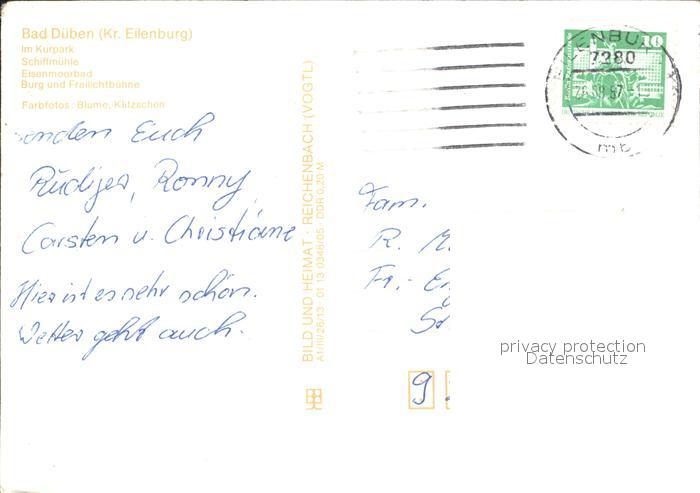 Bad Düben (Kr. Eilenburg)
Im Kurpark
Schiffmühle
Eisenmoorbad
Burg und Freilichtbühne
Farbfotos: Blume, Klitzschen
senden Euch
Rüdiger, Ronny,
Carsten u. Christiane
Hier ist es sehr schön.
Wetter geht auch.
BILD UND HEIMAT · REICHENBACH (VOGTL)
A1/III/26/13 01 13 0346/05 DDR 0,20 M
10
7280
mb
Fam.
R. M.
Fr.-
9
privacy protection
Datenschutz